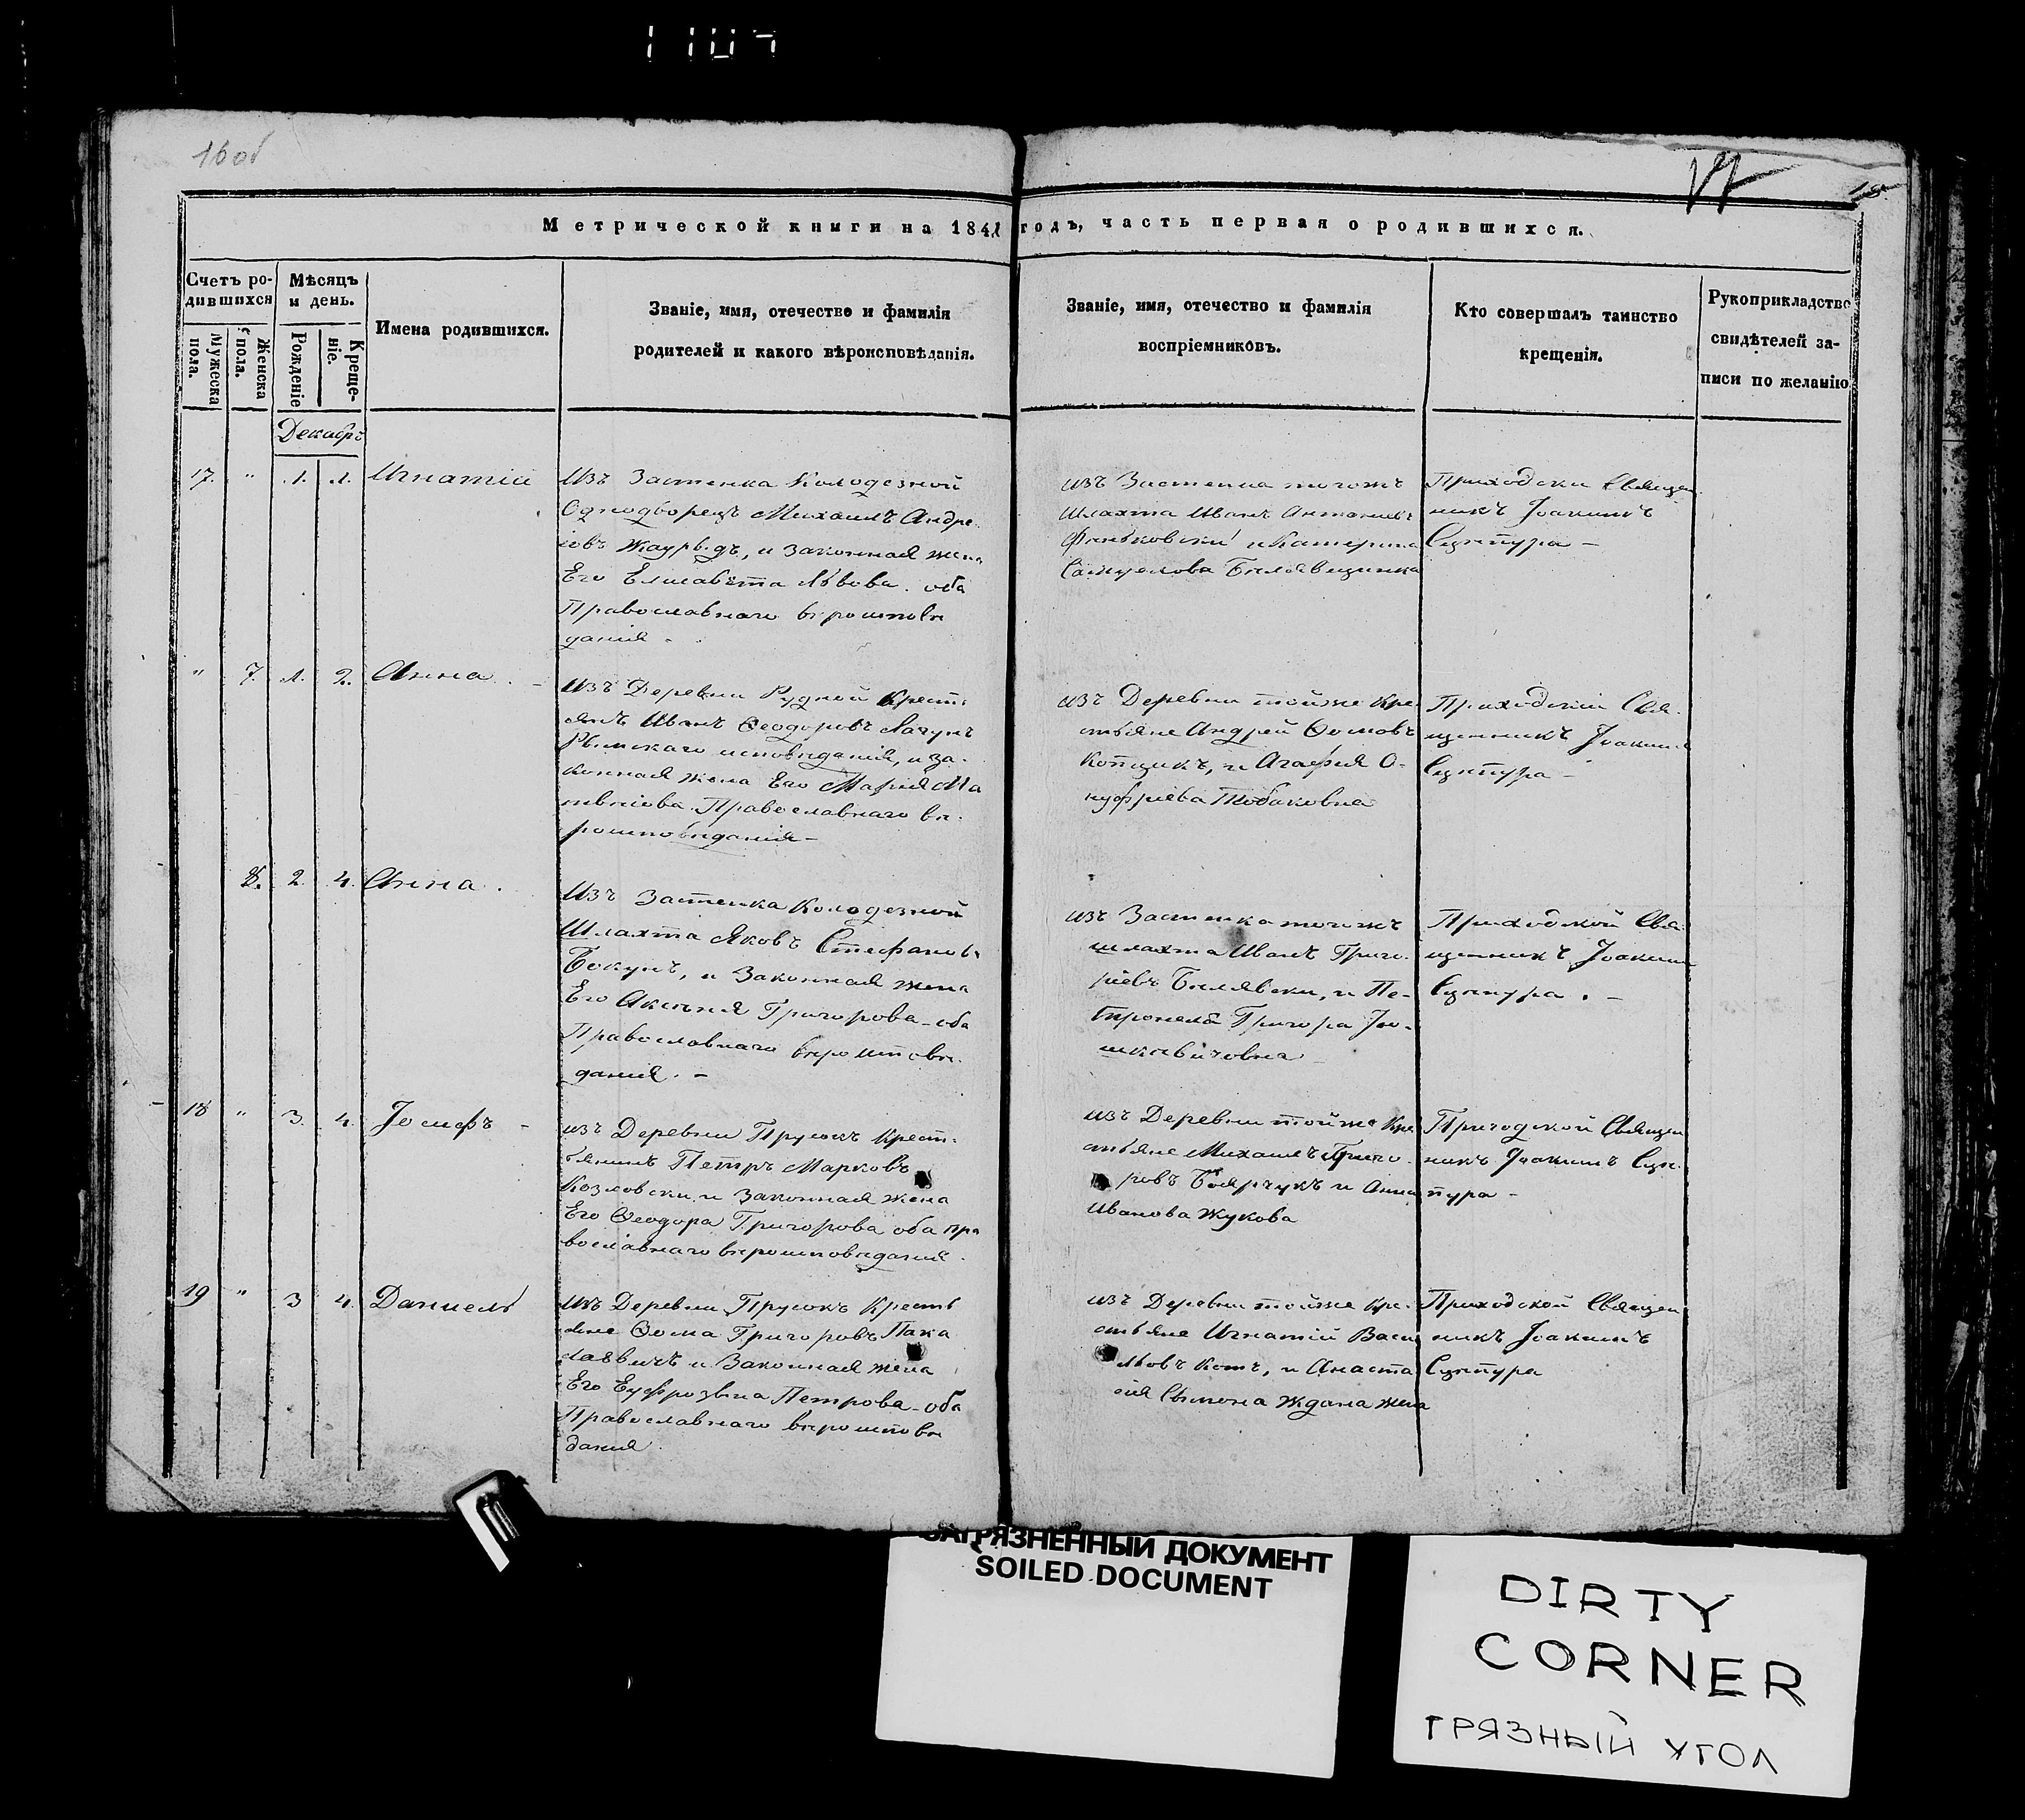 16 об
Метрической книги на 1841 годъ, часть первая о родившихся.
Счетъ ро-
дившихся
Мѣсяцъ
и день.
Мужеска
пола.
Женска
пола.
Рожденіе
Креще-
ніе.
Имена родившихся.
Званіе, имя, отечество и фамилія
родителей и какого вѣроисповѣданія.
Званіе, имя, отечество и фамилія
воспріемниковъ.
Кто совершалъ таинство
крещенія.
Рукоприкладство
свидѣтелей за-
писи по желанію
Декабрь
17. " 1. 1. Игнатій
Изъ Застенка Колодезной
Однодворецъ Михаилъ Андре
овъ и законная жена
Его Елисавѣта Львова. оба
Православнаго вѣроисповѣ
данія -
изъ Застенка тогожъ
шлахта Иванъ Антоніевъ
и Катерина
Самуелова
Приходски Священ
никъ Іоакимъ
" 7. 1. 2. Анна. -
Изъ Деревни Рудной Крестъ
янъ Иванъ Ѳеодоровъ
Рымскаго исповѣданія, и за-
конная жена Его Марія Ма
твѣіова Православнаго вѣ-
роисповѣданія -
изъ Деревни тойже Кре
стьяне Андрей Ѳомовъ
и Агафія О-
нуфріева
Приходскій Свя-
щенникъ Іоакимъ
8. 2. 4. Анна.
Изъ Застенка Колодезной
Шлахта Яковъ Стефановъ
Бокунъ, и Законная жена
Его Аксѣнія Григорова - оба
Православнаго вѣроисповѣ-
данія. -
изъ Застенка тогожъ
шлахта Иванъ Григо-
ріевъ Билявски, и Пе-
тронеля Григора Іо-
шкевичовна
Приходской Свя-
щенникъ Іоакимъ
18 " 3. 4. Іосифъ -
изъ Деревни Прусокъ Крест-
ьянинъ Петръ Марковъ
Козловски, и Законная жена
Его Ѳеодора Григорова оба пра
вославнаго вѣроисповѣданія.
изъ Деревни тойже Кре
стьяне Михаилъ Григо-
ровъ Боярчукъ и Анна
Иванова Жукова
Приходской Священ
никъ Іоакимъ
19 " 3 4. Даніель
изъ Деревни Прусокъ Кресть
яне Ѳома Григоровъ
и Законная жена
Его Еуфрозына Петрова - оба
Православнаго вѣроисповѣ
данія.
изъ Деревни тойже Кре-
стьяне Игнатій Васи
льовъ Котъ, и Анаста
сія Сымона Ждана жена
Приходской Священ
никъ Іоакимъ
ЗАГРЯЗНЕННЫЙ ДОКУМЕНТ
SOILED DOCUMENT
DIRTY
CORNER
ГРЯЗНЫЙ УГОЛ